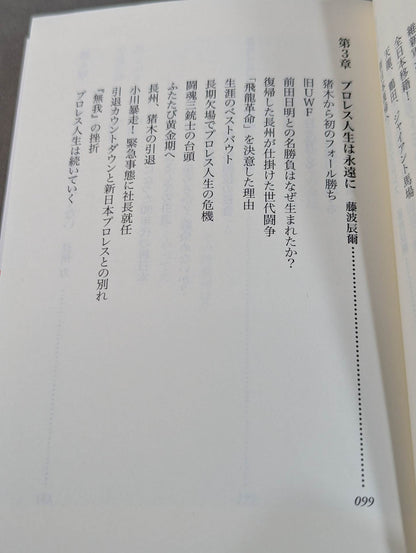 全日本移籍
天龍、鶴田、ジャイアント馬場
第３章　プロレス人生は永遠に　藤波辰爾……………099
猪木から初のフォール勝ち
旧ＵＷＦ
前田日明との名勝負はなぜ生まれたか？
復帰した長州が仕掛けた世代闘争
「飛龍革命」を決意した理由
生涯のベストバウト
長期欠場でプロレス人生の危機
闘魂三銃士の台頭
ふたたび黄金期へ
長州、猪木の引退
小川暴走！緊急事態に社長就任
引退カウントダウンと新日本プロレスとの別れ
『無我』の挫折
プロレス人生は続いていく